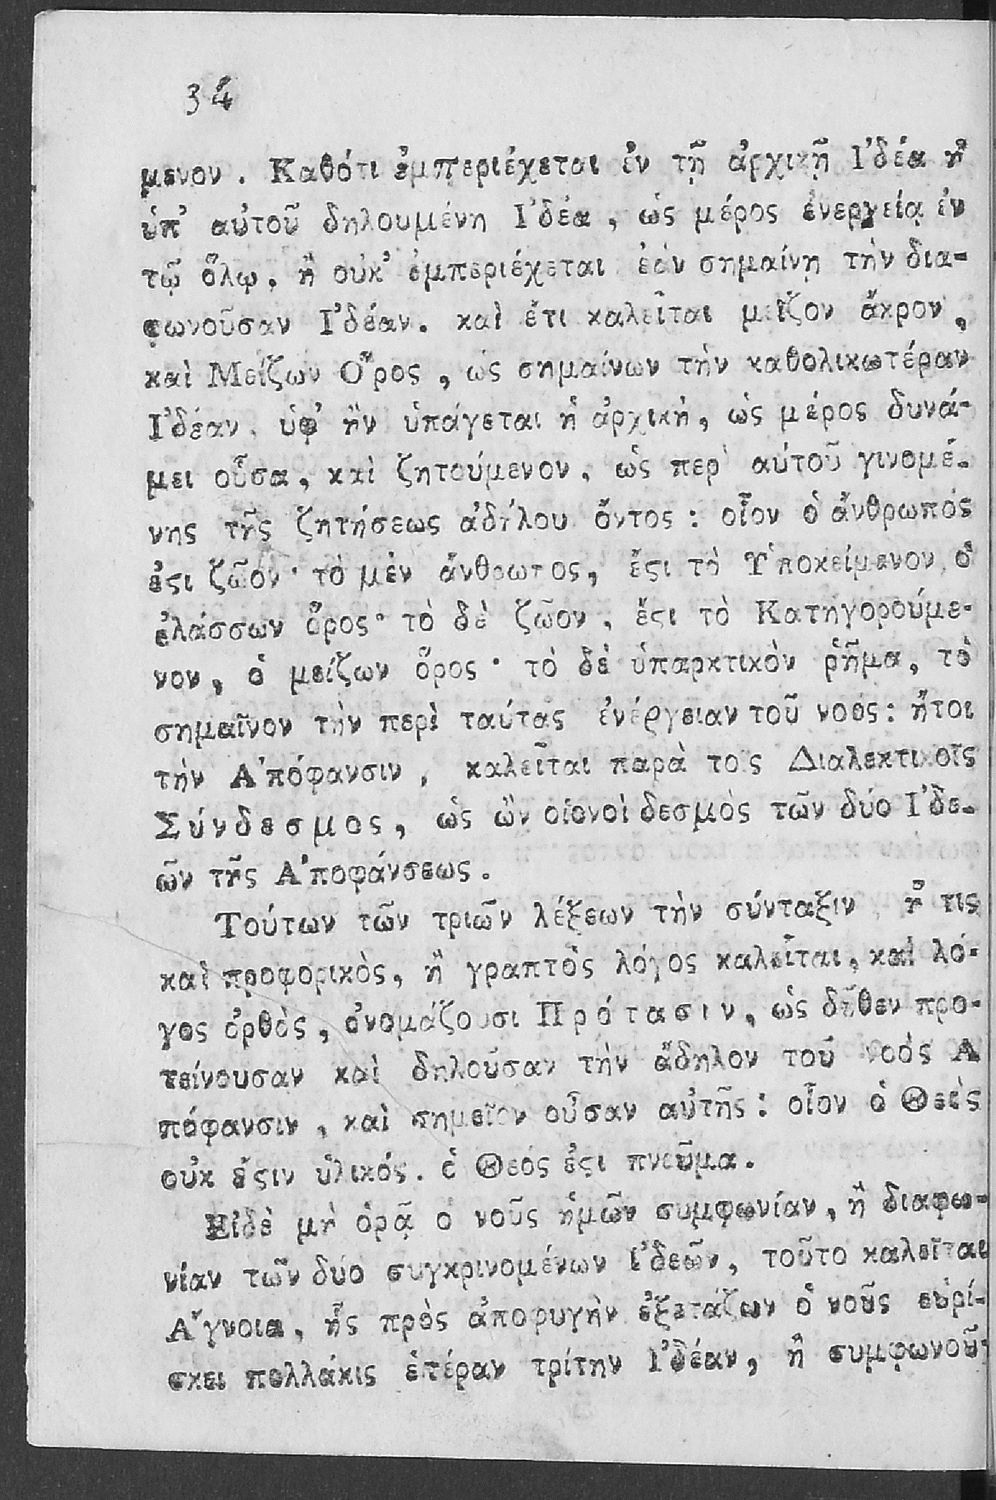 34
μενον. Καθότι ἐμπεριέχεται ἐν τῇ ἀρχικῇ Ἰδέᾳ ἡ
ὑπ' αὐτοῦ δηλουμένη Ἰδέα, ὡς μέρος ἐνεργείᾳ ἐν
τῷ ὅλῳ, ἢ οὐκ' ἐμπεριέχεται ἐὰν σημαίνῃ τὴν δια-
φωνοῦσαν Ἰδέαν. καὶ ἔτι καλεῖται μεῖζον ἄκρον,
καὶ Μείζων Ὅρος, ὡς σημαίνων τὴν καθολικωτέραν
Ἰδέαν, ὑφ' ἣν ὑπάγεται ἡ ἀρχικὴ, ὡς μέρος δυνά-
μει οὖσα, καὶ ζητούμενον, ὡς περ' αὐτοῦ γινομέ-
νης τῆς ζητήσεως ἀδήλου ὄντος: οἷον ὁ ἄνθρωπός
ἐϛι ζῶον· τὸ μὲν ἄνθρωπος, ἔϛι τὸ Ὑποκείμενον, ὁ
ἐλάσσων ὅρος· τὸ δὲ ζῶον, ἔϛι τὸ Κατηγορούμε-
νον, ὁ μείζων ὅρος· τὸ δὲ ὑπαρκτικὸν ῥῆμα, τὸ
σημαῖνον τὴν περὶ ταύτας ἐνέργειαν τοῦ νοός: ἤτοι
τὴν Ἀπόφανσιν, καλεῖται παρὰ τοῖς Διαλεκτικοῖς
Σύνδεσμος, ὡς ὢν οἱονοὶ δεσμὸς τῶν δύο Ἰδε-
ῶν τῆς Ἀποφάνσεως.
Τούτων τῶν τριῶν λέξεων τὴν σύνταξιν, ἥ τις
καὶ προφορικὸς, ἢ γραπτὸς λόγος καλεῖται, καὶ λό-
γος ὀρθὸς, ὀνομάζουσι Πρότασιν, ὡς δῆθεν προ-
τείνουσαν καὶ δηλοῦσαν τὴν ἄδηλον τοῦ νοός Α
πόφανσιν, καὶ σημεῖον οὖσαν αὐτῆς: οἷον ὁ Θεὸς
οὐκ ἔϛιν ὑλικός. ὁ Θεός ἐϛι πνεῦμα.
Εἰδὲ μὴ ὁρᾷ ὁ νοῦς ἡμῶν συμφωνίαν, ἢ διαφω-
νίαν τῶν δύο συγκρινομένων Ἰδεῶν, τοῦτο καλεῖται
Ἄγνοια, ἧς πρὸς ἀποφυγὴν ἐξετάζων ὁ νοῦς εὑρί-
σκει πολλάκις ἑτέραν τρίτην Ἰδέαν, ἢ συμφωνοῦ-